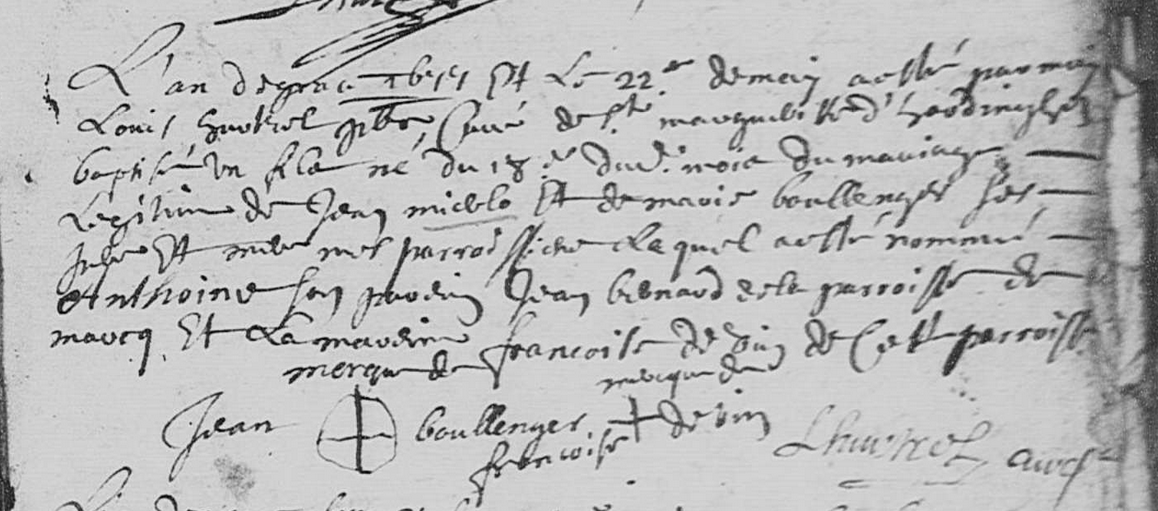 L'an de grace Et Le 22e de may a esté par moy
Louis huvtrel pbre Curé de Ste marguerite d'hardinghen
baptisé un fils né du 18e dud. mois du mariage
Legitime de Jean Et de marie boullenger ses
pere Et mere mes parroissiens Lequel a esté nommé
Anthoine son parein Jean benard de la parroisse de
marcq Et La mareine francoise de vin de Cette parroisse
merque de merque de
Jean boullenger de vin
francoise
Lhuvtrel curé